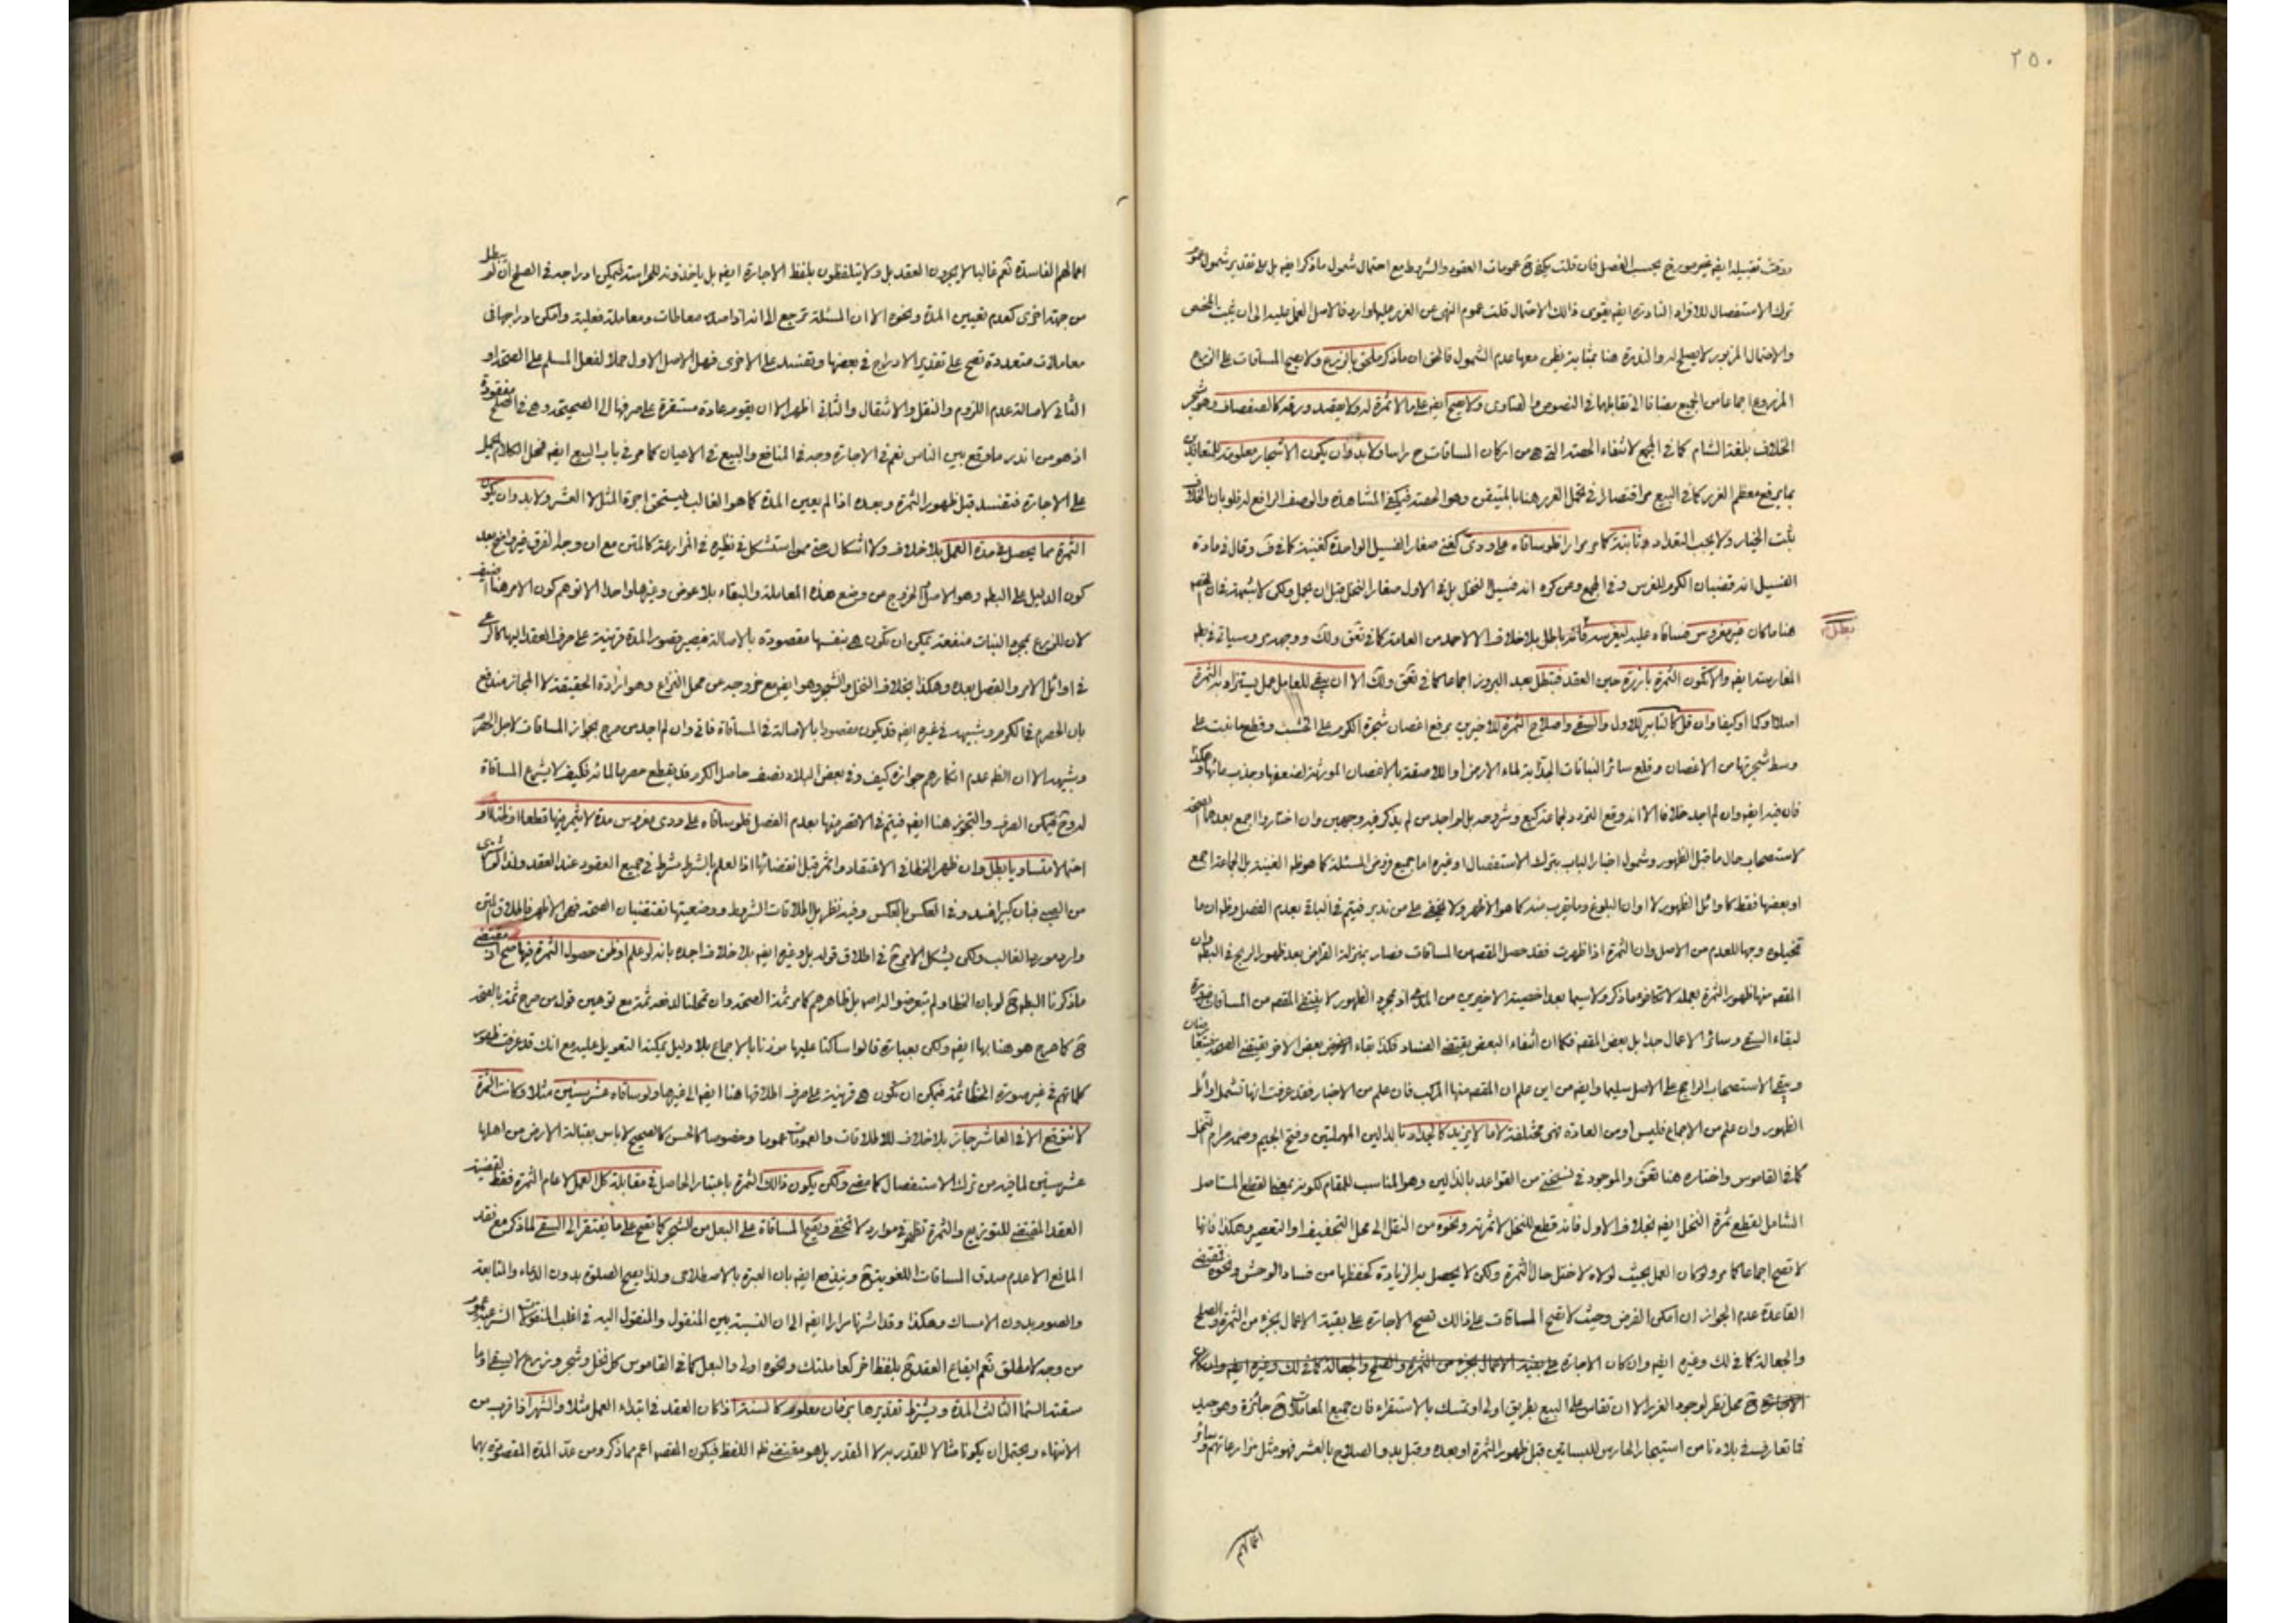 ٢٥٠
ترك الاستفصال للافراد النادرة ايضا يقوى ذلك الاحتمال قلت عموم النهى عن الغرر عليها وارد فالاصل العمل عليه الى ان يثبت المخصص
والاحتمال المزبور لا يصلح له والندرة هنا بمثابة يظن معها عدم الشمول فالحق ان ماذكر ملحق بالزرع ولا يصح المساقات على الزرع
المزروع اجماعا من الجميع مضافا الى تقابلهما فى النصوص والفتاوى ولا يصح ايضا على ما لا ثمرة له ولا يقصد ورقه كالصفصاف وهو شجر
الخلاف بلغة الشام كما فى المجمع لانتفاء الحصة التى هى من اركان المساقات راسا ولابد وان يكون الاشجار معلومة للمتعاقدين
بما يرفع معظم الغرر كما فى البيع اقتصارا فى تحمل الغرر هنا بالمتيقن وهو الحصة فيكفى المشاهدة والوصف الرافع له فلو بان الخلاف
ثبت الخيار ولا يجب التعداد كما مر مرارا فلو ساقاه على ودى كغنى صغار الفسيل الواحدة كغنية كما فى ق وقال فى مادة
الفسيل انه قضبان الكرم للغرس وفى المجمع وعن كره انه فسيل النخل بل فى الاول صغار النخل قبل ان يحمل ولكن لا شبهة فى ان المقصود
هنا ما كان غير مغروس فساقاه عليه ليغرسه فانه باطل بلا خلاف الا من احمد من العامة كما فى تحق ولك ووجهه وسياتى فى بطلان
بطل
المغارسة ايضا والا تكون الثمرة بارزة حين العقد فتبطل بعد البروز اجماعا كما فى تحق ولك الا ان يبقى للعامل عمل يستزاد به الثمرة
اصلا وكما وكيفا وان قل كالتابير للاول والسقى واصلاح الثمرة للاخيرين برفع اغصان شجرة الكرم على الخشب وقطع ما نبت على
وسط شجرتها من الاغصان وقلع سائر النباتات الجذابة لماء الارض او اللاصقة بالاغصان المورثة لضعفها وجذب مائها وهكذا
فان فيه ايضا وان لم اجد خلافا الا انه وقع التردد لجماعة كيع وشروحه بل لواحد من لم يذكر فيه وجهين وان اختاروا اجمع بعدهما الصحة
لاستصحاب حال ما قبل الظهور وشمول اخبار الباب بترك الاستفصال وغيره اما جميع فروض المسئلة كما هو ظاهر الغنية بل الجماعة اجمع
او بعضها فقط كاوائل الظهور لا اوان البلوغ وما يقرب منه كما هو الاظهر ولا يخفى على من تدبر فيتم فى الباقى بعدم الفصل وظهر ان ما
تخيلوه وجها للعدم من الاصل وان الثمرة اذا ظهرت فقد حصل المقصود من المساقات فصار بمنزلة القراض بعد ظهور الربح فى البطلان وان
المقصود منها ظهور الثمرة بعمله لا تكافو ما ذكر ولا سيما بعد اخصية الاخيرين من المدعى اذ بمجرد الظهور لا ينتفى المقصود من المساقات ضرورة
لبقاء السقى وسائر الاعمال جدا بل بعض المقصود فكما ان انتفاء البعض يقتضى الفساد فكذا بقاء بعض الاخر يقتضى الصحة فيتعارضان
ويبقى الاستصحاب الراجح على الاصل سليما وايضا من اين علم ان المقصود منها المركب فان علم من الاخبار فقد عرفت انها تشمل اوائل
الظهور وان علم من الاجماع فليس او من العادة فهى مختلفة لا ما لا يزيد كالجداد بالدالين المهملتين وفتح الجيم وضمه صرام النخل
كما فى القاموس واختاره هنا تحق والموجود فى نسختى من القواعد بالذالين وهو المناسب للمقام لكونه بمعنى القطع المستاصل
الشامل لقطع ثمرة النخل ايضا بخلاف الاول فانه قطع للنخل لا ثمرته ونحوه من النقل الى محل التجفيف او التعصير وهكذا فانها
لا تصح اجماعا كما مر ولو كان العمل بحيث لولاه لاختل حال الثمرة ولكن لا يحصل به الزيادة كحفظها من فساد الوحش ونحوه فمقتضى
القاعدة عدم الجواز ان امكن الفرض وحيث لا تصح المساقات على ذلك تصح الاجارة على بقية الاعمال بجزء من الثمرة والصلح
والجعالة كما فى لك وغيره ايضا وان كان الاجارة
محل نظر لوجود الغرر الا ان تقاس على البيع بطريق اولى او تمسك بالاستقراء فان جميع المعاملات جائزة وهو جيد
فما تعارف فى بلادنا من استيجار الحارس للبساتين قبل ظهور الثمرة او بعده وقبل بدو الصلاح بالعشر فهو مثل مزارعاتهم وسائر
اعمالهم
اعمالهم الفاسدة نعم غالبا لا يجرون العقد بل ولا يتلفظون بلفظ الاجارة ايضا بل ياخذونه للحراسة فيمكن ادراجه فى الصلح ان لم يبطل
من جهة اخرى كعدم تعيين المدة ونحوه الا ان المسئلة ترجع الى انه اذا صدر معاطات ومعاملة فعلية وامكن ادراجها فى
معاملات متعددة تصح على تقدير الادراج فى بعضها وتفسد على الاخرى فهل الاصل الاول حملا لفعل المسلم على الصحة او
الثانى لاصالة عدم اللزوم والنقل والانتقال والثانى اظهر الا ان يقوم عادة مستقرة على صرفها الى الصحيحة وهى فى الصلح مفقودة
اذ هو من اندر ما وقع بين الناس نعم فى الاجارة وجد فى المنافع والبيع فى الاعيان كما مر فى باب البيع ايضا فمحل الكلام يحمل
على الاجارة فتفسد قبل ظهور الثمرة وبعده اذا لم يعين المدة كما هو الغالب فيستحق اجرة المثل لا العشر ولابد وان يكون
الثمرة مما يحصل فى مدة العمل بلا خلاف ولا اشكال حتى ممن استشكل فى نظيره فى المزارعة كالماتن مع ان وجه الفرق غير واضح بعد
كون الدليل على البطلان وهو الاصل والخروج من وضع هذه المعاملة والبقاء بلا عوض وغيرها واحدا الا توهم كون الامر هنا اضيق
لان للزرع بمجرد النبات منفعة يمكن ان تكون هى بنفسها مقصودة بالاصالة فيصير قصور المدة قرينة على صرف العقد اليها كما مر
فى اوائل الامر والفصل بعده وهكذا بخلاف النخل والشجر وهو ايضا مع خروجه عن محل النزاع وهو ارادة الحقيقة لا المجاز مندفع
بان الحصرم فى الكرم وشبهه فى غيره ايضا قد يكون مقصودا بالاصالة فى المساقاة فانى وان لم اجد من صرح بجواز المساقات لاجل الحصرم
وشبهه الا ان الظاهر عدم انكارهم جوازه كيف وفى بعض البلاد نصف حاصل الكرم قد يقطع حصرما لمائه فكيف لا يشرع المساقاة
له وح فيمكن الفرض والتجويز هنا ايضا فيتم فى الاقصر منها بعدم الفصل فلو ساقاه على ودى مغروس مدة لا يثمر فيها قطعا او ظنا او
احتمالا متساويا بطل وان ظهر الخطا فى الاعتقاد واثمر قبل انقضائها اذ العلم بالشرط شرط فى جميع العقود عند العقد ولذا لو شرى
من الصبى فبان كبيرا فسد وفى العكس بالعكس وفيه نظر بل اطلاقات الشروط ووضعيتها تقتضيان الصحة فهى الاظهر فاطلاق المتن
وارد مورد الغالب ولكن يشكل الامر ح فى اطلاق قوله بل وغيره ايضا بلا خلاف اجده بانه لو علم او ظن حصول الثمرة فيها صح اذ مقتضى
ماذكرنا البطلان ح لو بان الخطا ولم يتعرضوا له اصلا بل ظاهرهم كما مر ثمة الصحة وان تمحلنا لدفعه ثمة مع توهين قول من صرح ثمة بالصحة
ح كما صرح هو هنا بها ايضا ولكن بعبارة قالوا ساكتا عليها موذنا بالاجماع بلا دليل يمكننا التعويل عليه مع انك قد عرفت ظهور
كلماتهم فى غير صورة الخطا ثمة فيمكن ان تكون هى قرينة على صرف اطلاقها هنا ايضا الى غيرها ولو ساقاه عشر سنين مثلا وكانت الثمرة
لا تتوقع الا فى العاشر جاز بلا خلاف للاطلاقات والعمومات عموما وخصوصا كالحسن كالصحيح لا باس بقبالة الارض من اهلها
عشر سنين لما فيه من ترك الاستفصال كما مضى ولكن يكون ذلك الثمرة باعتبار الحاصل فى مقابلة كل العمل لا عام الثمرة فقط لقضية
العقد المقتضى للتوزيع والثمرة تظهر فى موارد لا تخفى ويصح المساقاة على البعل من الشجر كما تصح على ما يفتقر الى السقى لما ذكر مع فقد
المانع الا عدم صدق المساقات اللغوية ح ويندفع ايضا بان العبرة بالاصطلاحى ولذا يصح الصلوة بدون الدعاء والمتابعة
والصوم بدون الامساك وهكذا وقد اشرنا مرارا ايضا الى ان النسبة بين المنقول والمنقول اليه فى اغلب المنقولات الشرعية عموم
من وجه لا مطلق نعم ايقاع العقد ح بلفظ اخر كعاملتك ونحوه اولى والبعل كما فى القاموس كل نخل وشجر وزرع لا يسقى او ما
سقته السماء الثالث المدة ويشترط تقديرها بزمان معلوم كالسنة اذا كان العقد فى ابتداء العمل مثلا والشهر اذا قرب من
الانتهاء ويحتمل ان يكونا مثالا للمقدر به لا المقدر بل هو مقتضى ظاهر اللفظ فيكون المقصود اعم مما ذكر ومن عد المدة المقصودة بهما